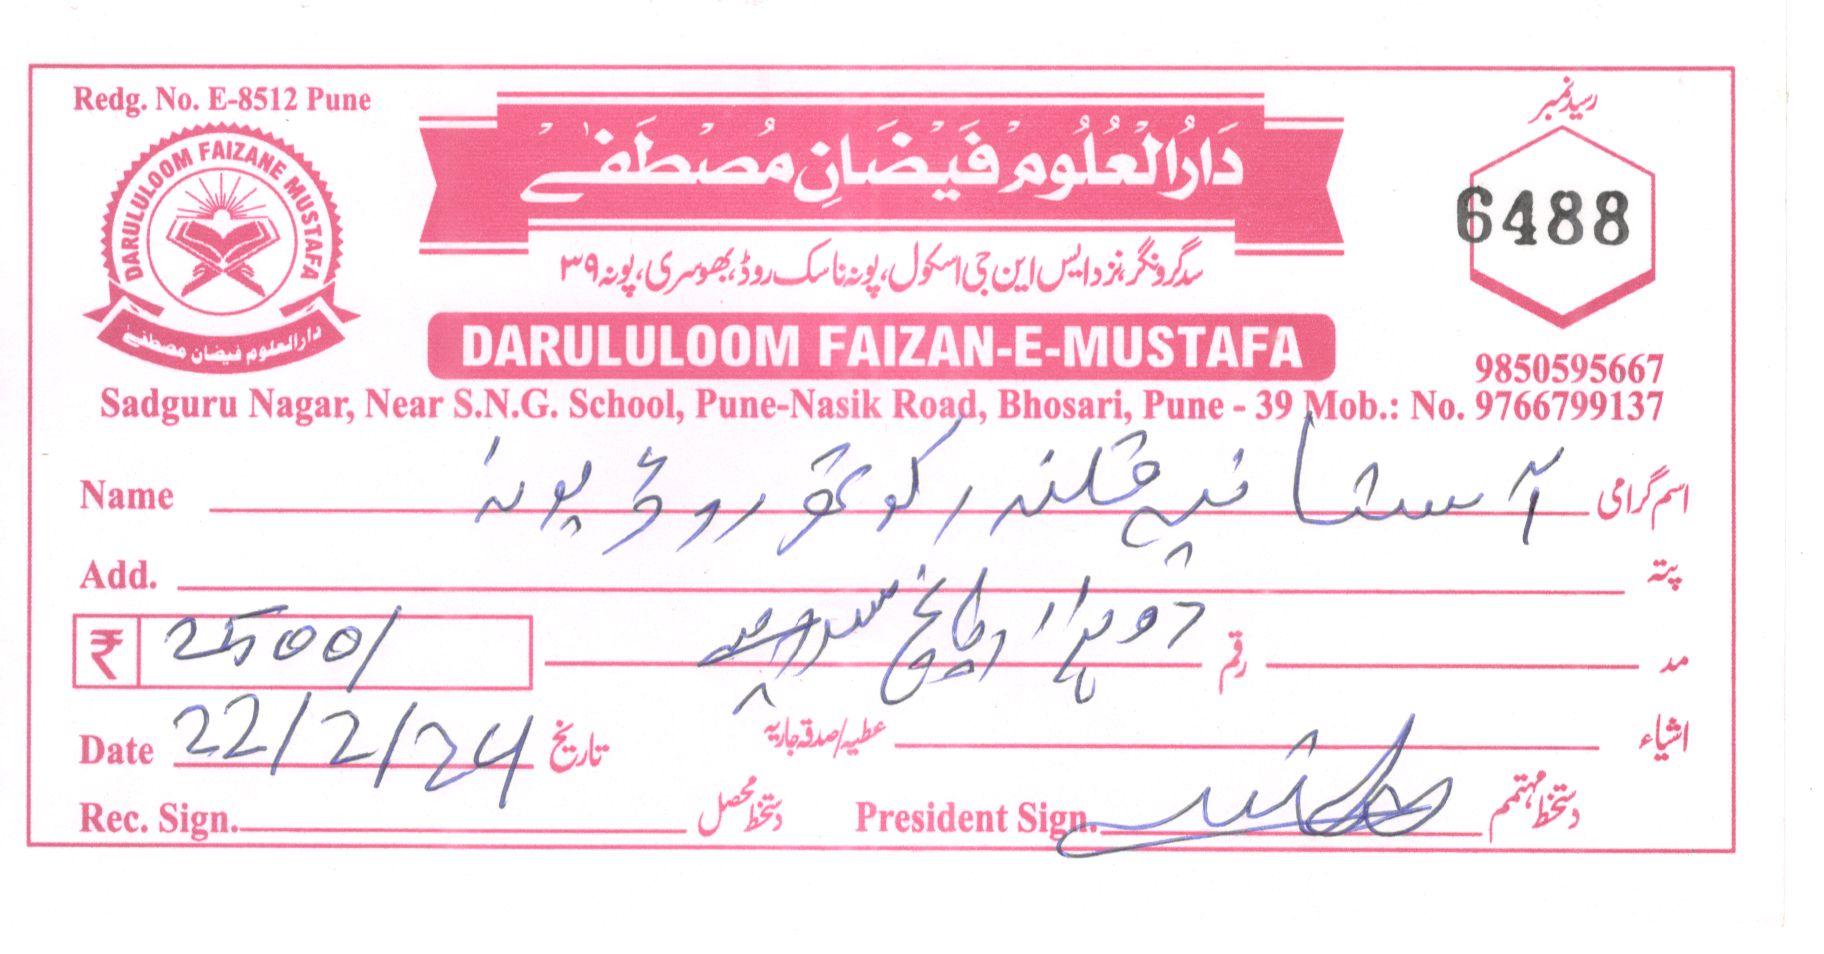 Redg. No. E-8512 Pune
رسید نمبر
DARULULOOM FAIZANE MUSTAFA
دارالعلوم فیضان مصطفےٰ
دَارُالْعُلُوْم فَیْضَانِ مُصْطَفےٰ
6488
سدگرونگر، نزد ایس این جی اسکول، پونہ ناسک روڈ، بھوسری، پونہ ۳۹
DARULULOOM FAIZAN-E-MUSTAFA
9850595667
Sadguru Nagar, Near S.N.G. School, Pune-Nasik Road, Bhosari, Pune - 39 Mob.: No. 9766799137
Name آستانہ قلندر روڈ پونہ اسم گرامی
Add. پتہ
₹ 2500/ دو ہزار پانچ سو روپیے رقم مد
Date 22/2/24 تاریخ عطیہ/صدقہ جاریہ اشیاء
Rec. Sign. دستخط محصل President Sign. دستخط مہتمم